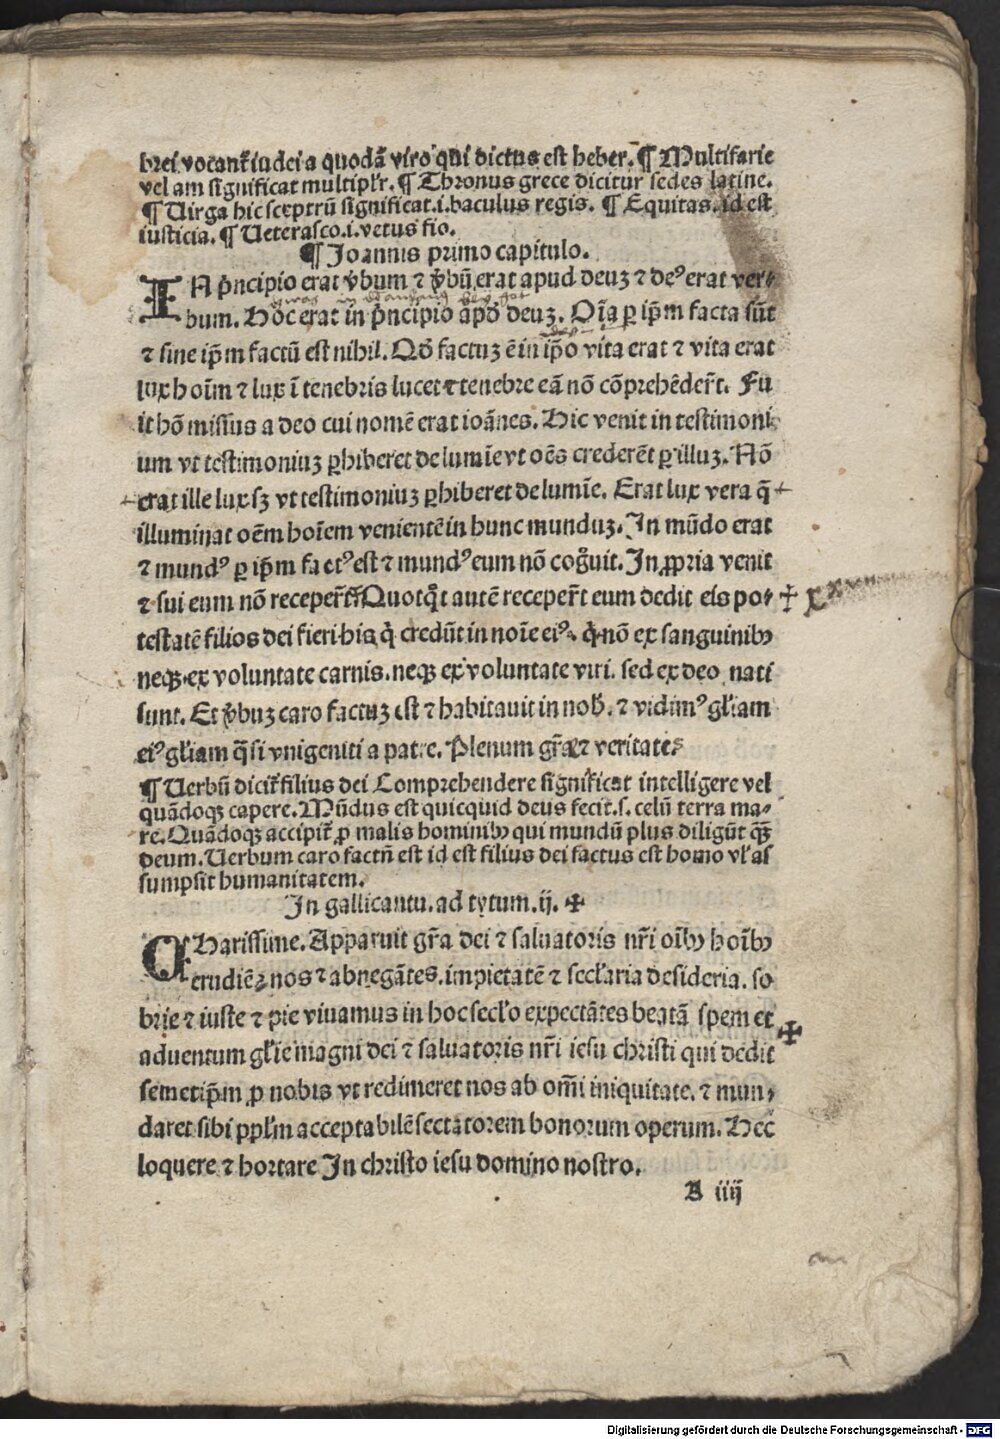 brei vocant᷑ iudei a quodā viro qui dictus est heber. ¶ Multifarie
vel am significat multipl'r. ¶ Thronus grece dicitur sedes latine.
¶ Uirga hic sceptrū significat .i. baculus regis. ¶ Equitas. id est
iusticia. ¶ Ueterasco .i. vetus fio.
¶ Joannis primo capitulo.
IN pͥncipio erat v̓bum ⁊ v̓bū erat apud deuȝ ⁊ deꝰ erat ver⸗
bum. Hoc erat in pͥncipio apď deuȝ. Oīa ꝑ ip̄m facta sūt
⁊ sine ip̄m factū est nihil. Qď factuȝ ē in ip̄o vita erat ⁊ vita erat
lux hoīm ⁊ lux ī tenebris lucet ⁊ tenebre eā nō cōprehēder̄t. Fu
it hō missus a deo cui nomē erat ioānes. Hic venit in testimoni
um vt testimoniuȝ ꝑhiberet de lumīe vt oēs crederēt ꝑ illuȝ. Nō
erat ille lux sȝ vt testimoniuȝ ꝑhiberet de lumīe. Erat lux vera q̄
illuminat oēm hoīem venientē in hunc munduȝ. In mūdo erat
⁊ mundꝰ ꝑ ip̄m factꝰ est ⁊ mundꝰ eum nō cogͦuit. In ꝓpria venit
⁊ sui eum nō receper̄t. Quotqͦt autē receper̄t eum dedit eis po⸗
testatē filios dei fieri his qͥ credūt in noīe eiꝰ. qͥ nō ex sanguinibꝰ
neqꝫ ex voluntate carnis. neqꝫ ex voluntate viri. sed ex deo nati
sunt. Et v̓buȝ caro factuȝ est ⁊ habitauit in nob̄. ⁊ vidimꝰ gl'iam
eiꝰ gl'iam q̄si vnigeniti a patre. Plenum gr̄æ ⁊ veritate.
¶ Uerbū dicit᷑ filius dei Comprehendere significat intelligere vel
quādoqꝫ capere. Mūdus est quicquid deus fecit. s. celū terra ma⸗
re. Quādoqꝫ accipit᷑ ꝓ malis hominibꝰ qui mundū plus diligūt qꝫ̄
deum. Uerbum caro factū est id est filius dei factus est homo vl' as
sumpsit humanitatem.
In gallicantu. ad tytum. ij. ✠
CHarissime. Apparuit gr̄a dei ⁊ saluatoris nr̄i oībꝰ hoībꝰ
erudiēs nos ⁊ abnegātes. impietatē ⁊ secl'aria desideria. so
brie ⁊ iuste ⁊ pie viuamus in hoc secl'o expectātes beatā spem et
aduentum gl'ie magni dei ⁊ saluatoris nr̄i iesu christi qui dedit
semetip̄m ꝓ nobis vt redimeret nos ab omī iniquitate. ⁊ mun⸗
daret sibi ppl'm acceptabilē sectatorem bonorum operum. Hec
loquere ⁊ hortare In christo iesu domino nostro.
A iiij
Digitalisierung gefördert durch die Deutsche Forschungsgemeinschaft - DFG